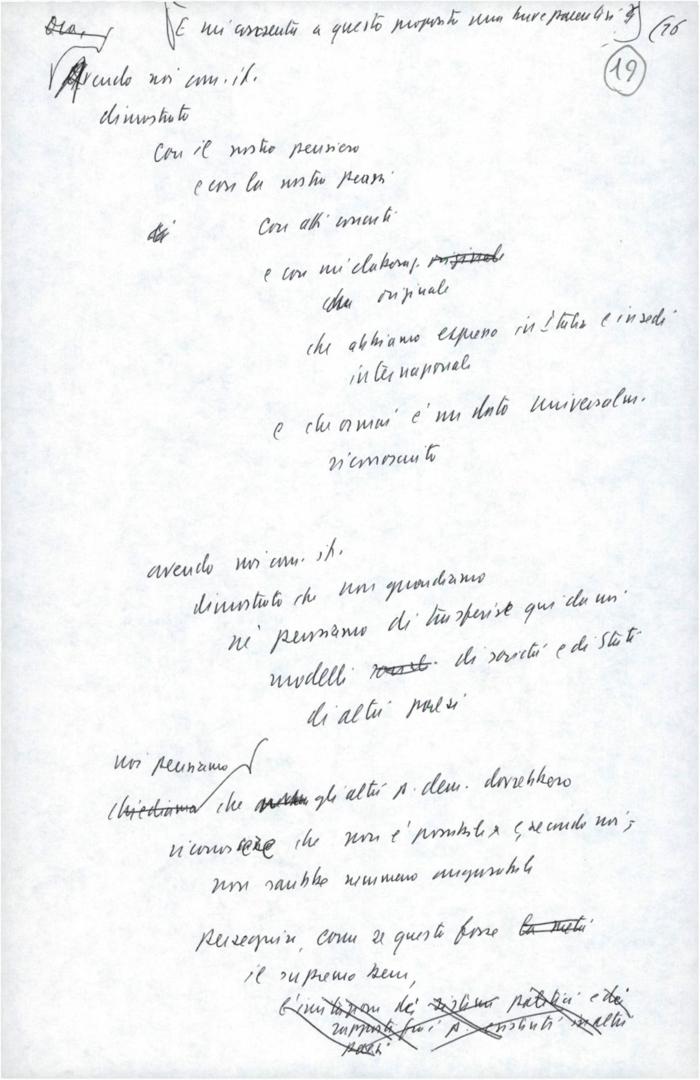 Ora, [E mi consenta a questo proposito una breve parentesi] (16
19
Avendo noi com. it.
dimostrato
con il nostro pensiero
e con la nostra prassi
con atti concreti
e con un'elaboraz. originale
che originale
che abbiamo espresso in Italia e in sedi
internazionali
e che ormai è un dato universalm.
riconosciuto
avendo noi com. it.
dimostrato che non guardiamo
né pensiamo di trasferire qui da noi
modelli di società e di Stati
di altri paesi
noi pensiamo
chiediamo che gli altri p. dem. dovrebbero
riconoscere che non è possibile e, secondo noi,
non sarebbe nemmeno augurabile
perseguire, come se questo fosse la meta
il supremo bene,
l'imitazione dei sistemi politici e dei
rapporti fra i p. esistenti in altri
paesi